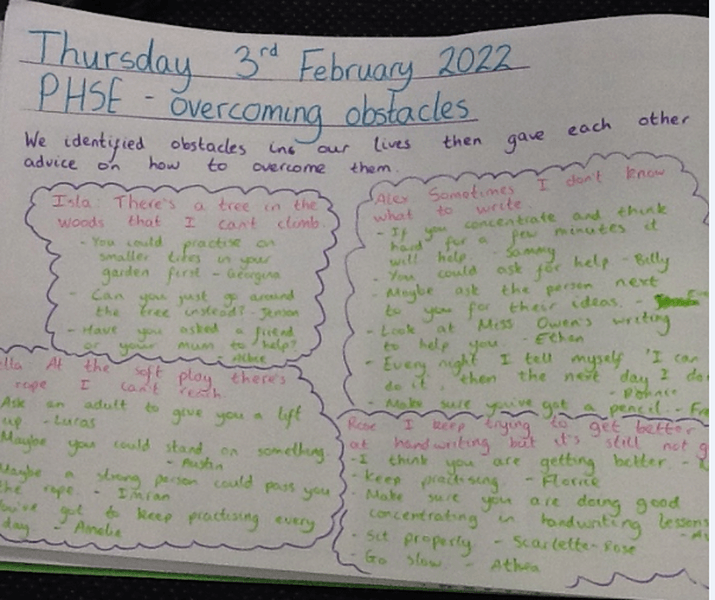 Thursday 3rd February 2022
PHSE - overcoming obstacles
We identified obstacles ins our lives then gave each other
advice on how to overcome them.
Isla: There's a tree in the
woods that I can't climb.
- You could practise on
smaller trees in your
garden first - Georgina
- Can you just go around
the tree instead? - Jenson
- Have you asked a friend
or your mum to help?
- Alfie
Alex Sometimes I don't know
what to write
- If you concentrate and think
hard for a few minutes it
will help - Sammy
- You could ask for help - Billy
- Maybe ask the person next
to you for their ideas. -
- Look at Miss Owen's writing
to help you - Ethan
- Every night I tell myself 'I can
do it', then the next day I do
- Make sure you've got a pencil. - Fr
lla: At the soft play there's
rope I can't reach.
Ask an adult to give you a lift
up - Lucas
Maybe you could stand on something.
- Austin
Maybe a strong person could pass you
the rope. - Imran
You've got to keep practising every
day - Amelie
Rose I keep trying to get better
at handwriting but it's still not g
- I think you are getting better -
- Keep practising - Florrie
- Make sure you are doing good
concentrating in handwriting lessons
- Sit properly - Scarlette-Rose
- Go slow. - Athea